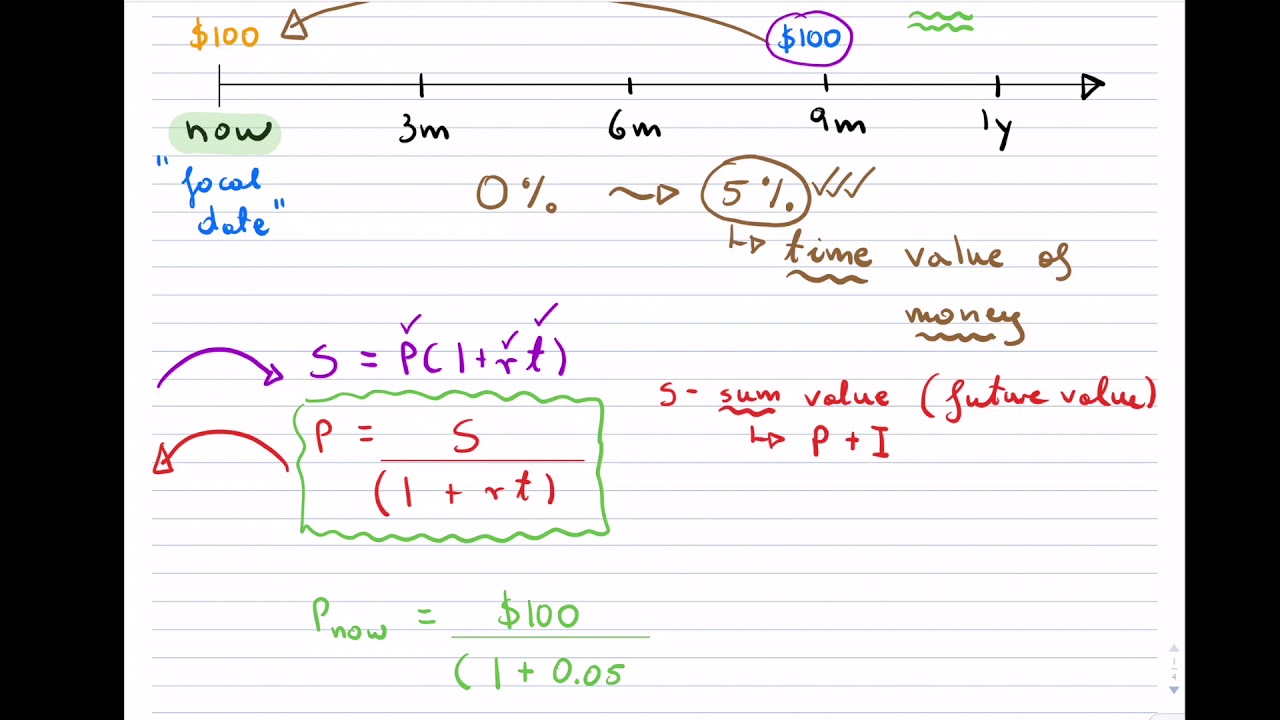 $100 $100
now 3m 6m 9m 1y
"focal
date"
0% 5%
time value of
money
S = P(1+rt)
S - sum value (future value)
P + I
P = S
(1 + rt)
Pnow = $100
(1 + 0.05
1
4